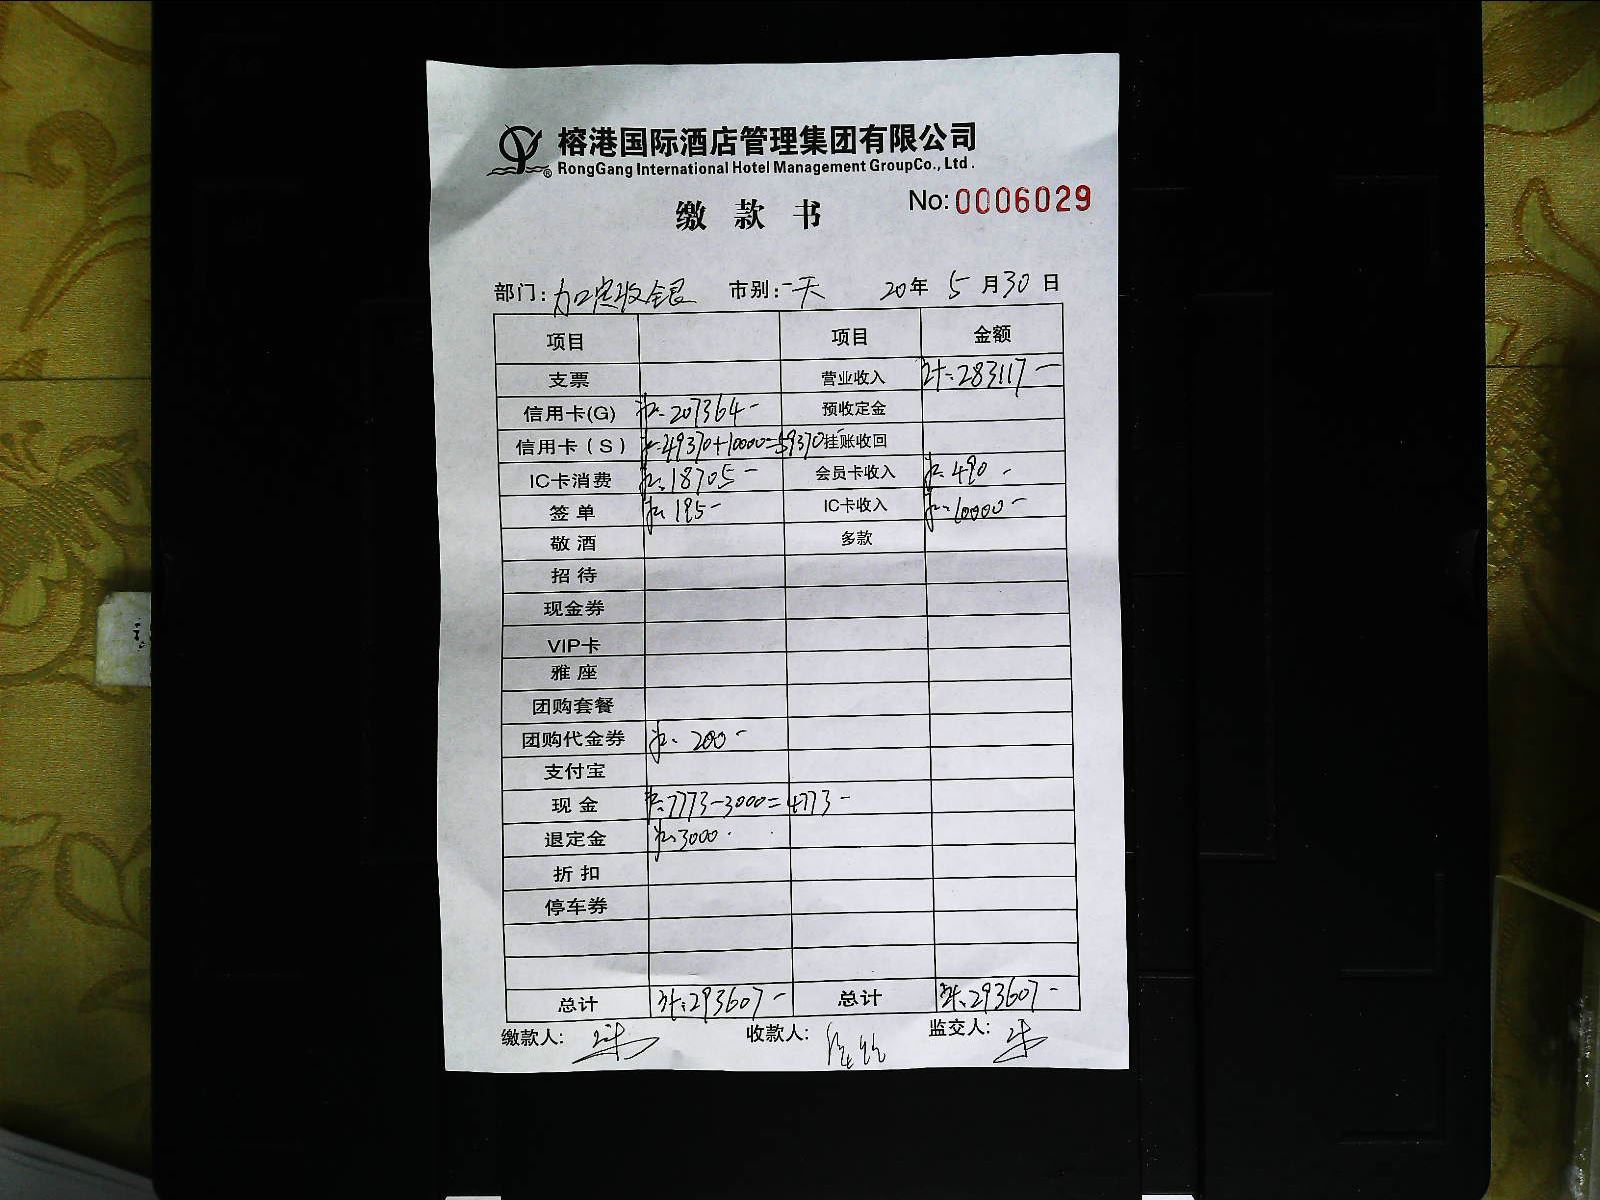 榕港国际酒店管理集团有限公司
RongGang International Hotel Management GroupCo., Ltd.
No: 0006029
缴 款 书
部门: 收银 市别: 一天 20年 5 月 30 日
项目 项目 金额
支票 营业收入 计: 283117-
信用卡(G) 207364- 预收定金
信用卡(S) 49370+10000=59370 挂账收回
IC卡消费 18705- 会员卡收入 490-
签 单 195- IC卡收入 10000-
敬 酒 多款
招 待
现金券
VIP卡
雅 座
团购套餐
团购代金券 200-
支付宝
现 金 7773-3000=4773-
退定金 3000
折 扣
停车券
总计 计: 293607- 总计 计: 293607-
缴款人: 收款人: 监交人: